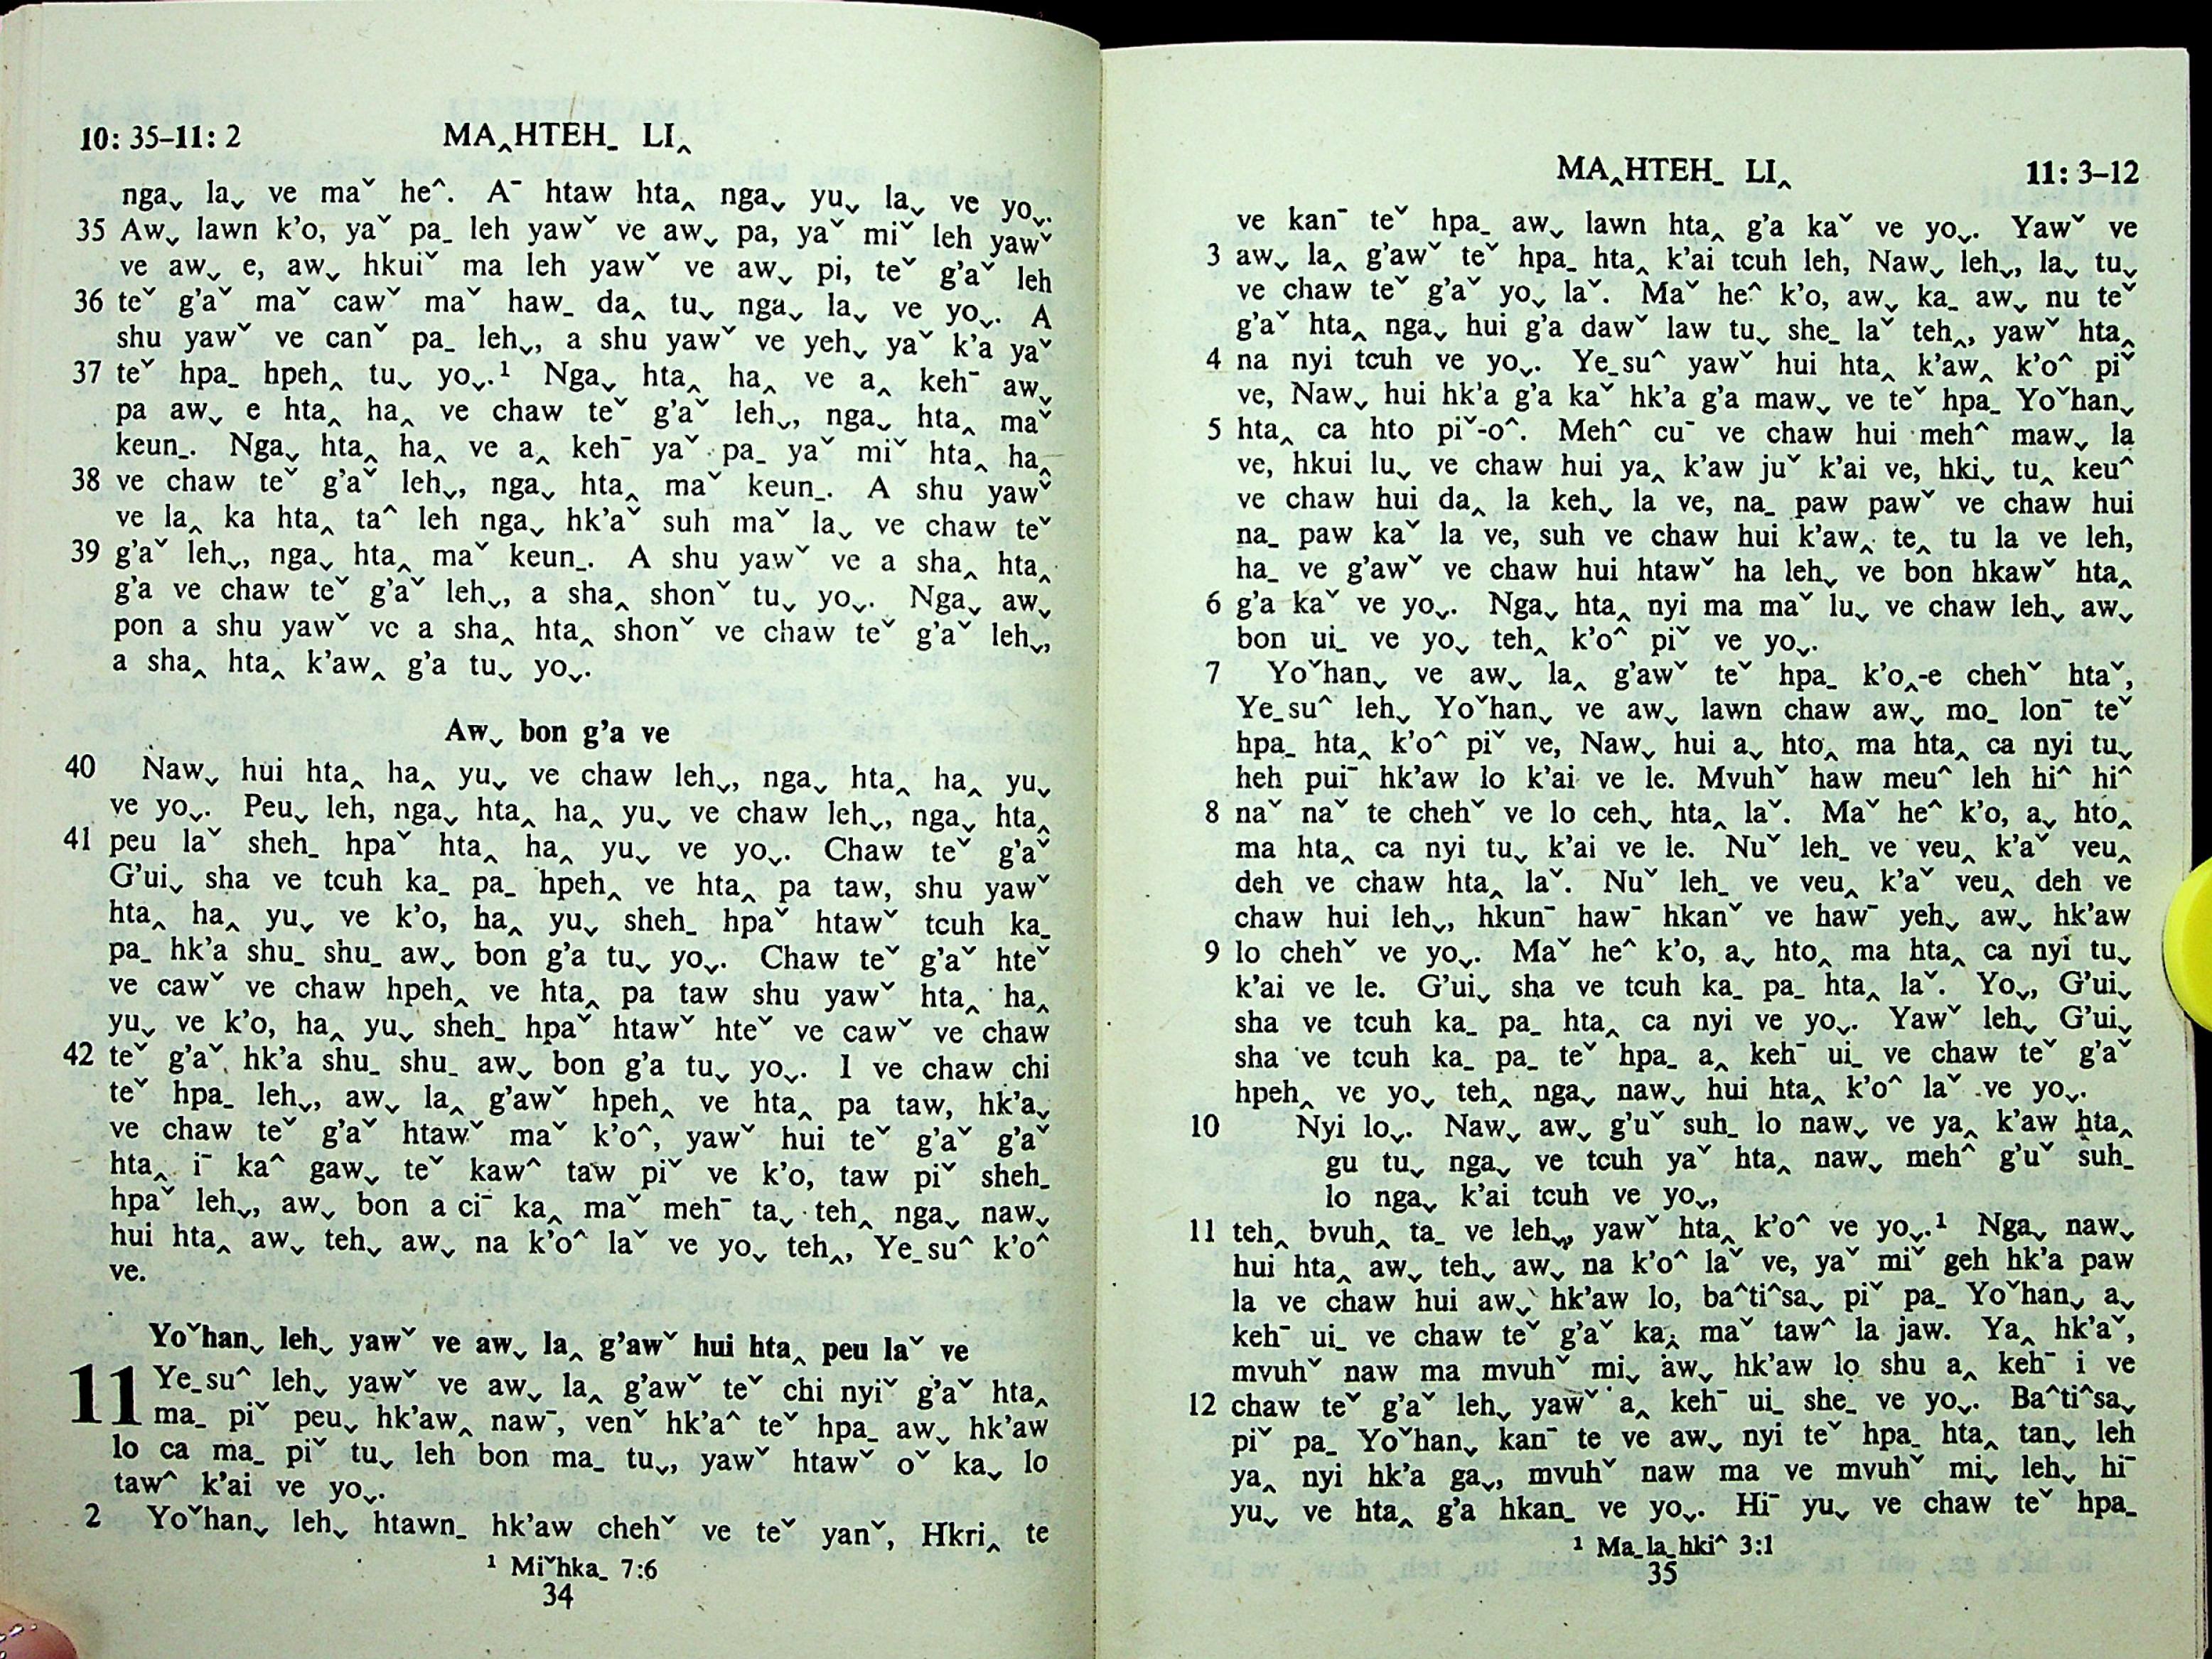 10: 35–11: 2 MA‸HTEH˗ LI‸
ngaˬ laˬ ve maˇ heˆ. Aˉ htaw hta‸ ngaˬ yuˬ laˬ ve yoˬ.
35 Awˬ lawn k’o, yaˇ pa˗ leh yawˇ ve awˬ pa, yaˇ miˇ leh yawˇ
ve awˬ e, awˬ hkuiˇ ma leh yawˇ ve awˬ pi, teˇ g’aˇ leh
36 teˇ g’aˇ maˇ cawˇ maˇ haw˗ da‸ tuˬ ngaˬ laˬ ve yoˬ. A
shu yawˇ ve canˇ pa˗ lehˬ, a shu yawˇ ve yehˬ yaˇ k’a yaˇ
37 teˇ hpa˗ hpeh‸ tuˬ yoˬ.¹ Ngaˬ hta‸ ha‸ ve a‸ kehˉ awˬ
pa awˬ e hta‸ ha‸ ve chaw teˇ g’aˇ lehˬ, ngaˬ hta‸ maˇ
keun˗. Ngaˬ hta‸ ha‸ ve a‸ kehˉ yaˇ pa˗ yaˇ miˇ hta‸ ha‸
38 ve chaw teˇ g’aˇ lehˬ, ngaˬ hta‸ maˇ keun˗. A shu yawˇ
ve la‸ ka hta‸ taˆ leh ngaˬ hk’aˇ suh maˇ laˬ ve chaw teˇ
39 g’aˇ lehˬ, ngaˬ hta‸ maˇ keun˗. A shu yawˇ ve a sha‸ hta‸
g’a ve chaw teˇ g’aˇ lehˬ, a sha‸ shonˇ tuˬ yoˬ. Ngaˬ awˬ
pon a shu yawˇ ve a sha‸ hta‸ shonˇ ve chaw teˇ g’aˇ lehˬ,
a sha‸ hta‸ k’aw‸ g’a tuˬ yoˬ.
Awˬ bon g’a ve
40 Nawˬ hui hta‸ ha‸ yuˬ ve chaw lehˬ, ngaˬ hta‸ ha‸ yuˬ
ve yoˬ. Peuˬ leh, ngaˬ hta‸ ha‸ yuˬ ve chaw lehˬ, ngaˬ hta‸
41 peu laˇ sheh˗ hpaˇ hta‸ ha‸ yuˬ ve yoˬ. Chaw teˇ g’aˇ
G’uiˬ sha ve tcuh ka˗ pa˗ hpeh‸ ve hta‸ pa taw, shu yawˇ
hta‸ ha‸ yuˬ ve k’o, ha‸ yuˬ sheh˗ hpaˇ htawˇ tcuh ka˗
pa˗ hk’a shu˗ shu˗ awˬ bon g’a tuˬ yoˬ. Chaw teˇ g’aˇ hteˇ
ve cawˇ ve chaw hpeh‸ ve hta‸ pa taw shu yawˇ hta‸ ha‸
yuˬ ve k’o, ha‸ yuˬ sheh˗ hpaˇ htawˇ hteˇ ve cawˇ ve chaw
42 teˇ g’aˇ hk’a shu˗ shu˗ awˬ bon g’a tuˬ yoˬ. I ve chaw chi
teˇ hpa˗ lehˬ, awˬ la‸ g’awˇ hpeh‸ ve hta‸ pa taw, hk’aˬ
ve chaw teˇ g’aˇ htawˇ maˇ k’oˆ, yawˇ hui teˇ g’aˇ g’aˇ
hta‸ iˉ kaˆ gawˬ teˇ kawˆ taw piˇ ve k’o, taw piˇ sheh˗
hpaˇ lehˬ, awˬ bon a ciˉ ka‸ maˇ mehˉ taˬ teh‸ ngaˬ nawˬ
hui hta‸ awˬ tehˬ awˬ na k’oˆ laˇ ve yoˬ teh‸, Ye˗suˆ k’oˆ
ve.
Yoˇhanˬ lehˬ yawˇ ve awˬ la‸ g’awˇ hui hta‸ peu laˇ ve
11 Ye˗suˆ lehˬ yawˇ ve awˬ la‸ g’awˇ teˇ chi nyiˇ g’aˇ hta‸
ma˗ piˇ peuˬ hk’aw‸ nawˉ, venˇ hk’aˆ teˇ hpa˗ awˬ hk’aw
lo ca ma˗ piˇ tuˬ leh bon ma˗ tuˬ, yawˇ htawˇ oˇ kaˬ lo
tawˆ k’ai ve yoˬ.
2 Yoˇhanˬ lehˬ htawn˗ hk’aw chehˇ ve teˇ yanˇ, Hkri‸ te
¹ Miˇhka˗ 7:6
34
MA‸HTEH˗ LI‸ 11: 3–12
ve kanˉ teˇ hpa˗ awˬ lawn hta‸ g’a kaˇ ve yoˬ. Yawˇ ve
3 awˬ la‸ g’awˇ teˇ hpa˗ hta‸ k’ai tcuh leh, Nawˬ lehˬ, laˬ tuˬ
ve chaw teˇ g’aˇ yoˬ laˇ. Maˇ heˆ k’o, awˬ ka˗ awˬ nu teˇ
g’aˇ hta‸ ngaˬ hui g’a dawˇ law tuˬ she˗ laˇ teh‸, yawˇ hta‸
4 na nyi tcuh ve yoˬ. Ye˗suˆ yawˇ hui hta‸ k’aw‸ k’oˆ piˇ
ve, Nawˬ hui hk’a g’a kaˇ hk’a g’a mawˬ ve teˇ hpa˗ Yoˇhanˬ
5 hta‸ ca hto piˇ-oˆ. Mehˆ cuˉ ve chaw hui mehˆ mawˬ la
ve, hkui luˬ ve chaw hui ya‸ k’aw juˇ k’ai ve, hkiˬ tu‸ keuˆ
ve chaw hui da‸ la kehˬ la ve, na˗ paw pawˇ ve chaw hui
na˗ paw kaˇ la ve, suh ve chaw hui k’aw‸ te‸ tu la ve leh,
ha˗ ve g’awˇ ve chaw hui htawˇ ha lehˬ ve bon hkawˇ hta‸
6 g’a kaˇ ve yoˬ. Ngaˬ hta‸ nyi ma maˇ luˬ ve chaw lehˬ awˬ
bon ui˗ ve yoˬ teh‸ k’oˆ piˇ ve yoˬ.
7 Yoˇhanˬ ve awˬ la‸ g’awˇ teˇ hpa˗ k’o‸-e chehˇ htaˇ,
Ye˗suˆ lehˬ Yoˇhanˬ ve awˬ lawn chaw awˬ mo˗ lonˉ teˇ
hpa˗ hta‸ k’oˆ piˇ ve, Nawˬ hui aˬ hto‸ ma hta‸ ca nyi tuˬ
heh puiˉ hk’aw lo k’ai ve le. Mvuhˇ haw meuˆ leh hiˆ hiˆ
8 naˇ naˇ te chehˇ ve lo cehˬ hta‸ laˇ. Maˇ heˆ k’o, aˬ hto‸
ma hta‸ ca nyi tuˬ k’ai ve le. Nuˇ leh˗ ve veu‸ k’aˇ veu‸
deh ve chaw hta‸ laˇ. Nuˇ leh˗ ve veu‸ k’aˇ veu‸ deh ve
chaw hui lehˬ, hkunˉ hawˉ hkanˇ ve hawˉ yehˬ awˬ hk’aw
9 lo chehˇ ve yoˬ. Maˇ heˆ k’o, aˬ hto‸ ma hta‸ ca nyi tuˬ
k’ai ve le. G’uiˬ sha ve tcuh ka˗ pa˗ hta‸ laˇ. Yoˬ, G’uiˬ
sha ve tcuh ka˗ pa˗ hta‸ ca nyi ve yoˬ. Yawˇ lehˬ G’uiˬ
sha ve tcuh ka˗ pa˗ teˇ hpa˗ a‸ kehˉ ui˗ ve chaw teˇ g’aˇ
hpeh‸ ve yoˬ teh‸ ngaˬ nawˬ hui hta‸ k’oˆ laˇ ve yoˬ.
10 Nyi loˬ. Nawˬ awˬ g’uˇ suh˗ lo nawˬ ve ya‸ k’aw hta‸
gu tuˬ ngaˬ ve tcuh yaˇ hta‸ nawˬ mehˆ g’uˇ suh˗
lo ngaˬ k’ai tcuh ve yoˬ,
11 teh‸ bvuh‸ ta˗ ve lehˬ, yawˇ hta‸ k’oˆ ve yoˬ.¹ Ngaˬ nawˬ
hui hta‸ awˬ tehˬ awˬ na k’oˆ laˇ ve, yaˇ miˇ geh hk’a paw
la ve chaw hui awˬ hk’aw lo, baˆtiˆsaˬ piˇ pa˗ Yoˇhanˬ aˬ
kehˉ ui˗ ve chaw teˇ g’aˇ ka‸ maˇ tawˆ la jaw. Ya‸ hk’aˇ,
mvuhˇ naw ma mvuhˇ miˬ awˬ hk’aw lo shu a‸ kehˉ i ve
12 chaw teˇ g’aˇ lehˬ yawˇ a‸ kehˉ ui˗ she˗ ve yoˬ. Baˆtiˆsaˬ
piˇ pa˗ Yoˇhanˬ kanˉ te ve awˬ nyi teˇ hpa˗ hta‸ tanˬ leh
ya‸ nyi hk’a gaˬ, mvuhˇ naw ma ve mvuhˇ miˬ lehˬ hiˉ
yuˬ ve hta‸ g’a hkan˗ ve yoˬ. Hiˉ yuˬ ve chaw teˇ hpa˗
¹ Ma˗la˗hkiˆ 3:1
35